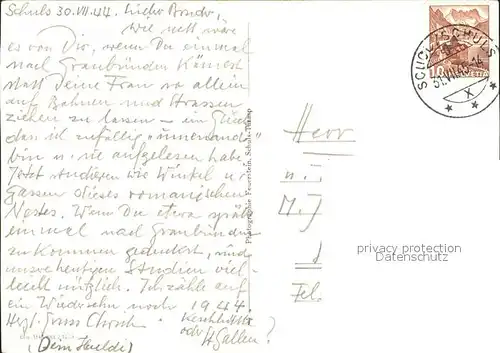 Schuls 30.VII.44. Lieber Bruder,
wie nett wäre
es von Dir, wenn Du einmal
nach Graubünden kämest
statt Deine Frau so allein
auf Bahnen und Strassen
ziehen zu lassen – ein Glück
dass ich zufällig "innenand"
bin u. sie aufgelesen habe.
Jetzt studieren wir Winkel u.
Gassen dieses romanischen
Nestes. Wenn Du etwa später
einmal nach Graubünden
zu kommen gedenkst, sind
unsre heutigen Studien viel-
leicht nützlich. Ich zähle auf
ein Wiedersehn noch 1944.
Herzl. Gruss
oder
St. Gallen?
Photographie Feuerstein, Schuls-Tarasp
Herr
u.
M. J
Fel.
SCUOL/SCHULS
HELVETIA
10
X
privacy protection